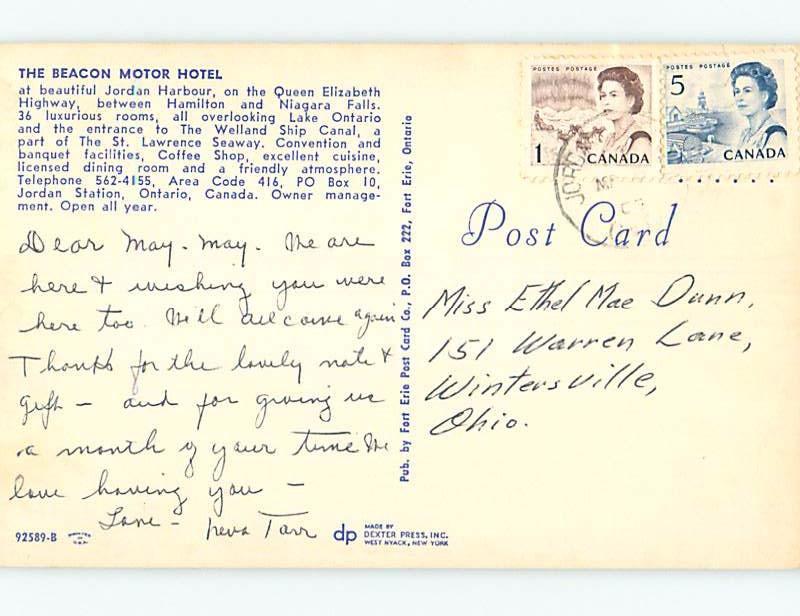 THE BEACON MOTOR HOTEL
at beautiful Jordan Harbour, on the Queen Elizabeth
Highway, between Hamilton and Niagara Falls.
36 luxurious rooms, all overlooking Lake Ontario
and the entrance to The Welland Ship Canal, a
part of The St. Lawrence Seaway. Convention and
banquet facilities, Coffee Shop, excellent cuisine,
licensed dining room and a friendly atmosphere.
Telephone 562-4155, Area Code 416, PO Box 10,
Jordan Station, Ontario, Canada. Owner manage-
ment. Open all year.
Dear May-May. We are
here & wishing you were
here too. We'll all come again
Thanks for the lovely note &
gift – and for giving us
a month of your time We
love having you –
Love – Neva Tarr
92589-B
dp
MADE BY
DEXTER PRESS, INC.
WEST NYACK, NEW YORK
Pub. by Fort Erie Post Card Co., P.O. Box 222, Fort Erie, Ontario
POSTES POSTAGE
1
CANADA
POSTES POSTAGE
5
CANADA
Post Card
Miss Ethel Mae Dunn,
151 Warren Lane,
Wintersville,
Ohio.